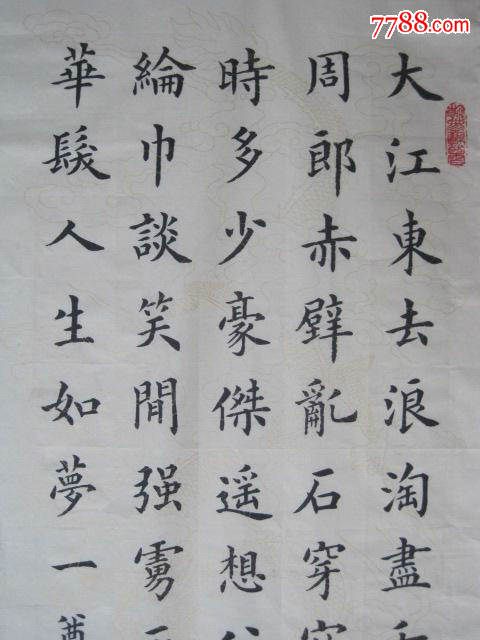 大江東去浪淘盡
周郎赤壁亂石穿
時多少豪傑遥想
綸巾談笑間强虜
華髮人生如夢一
7788.com